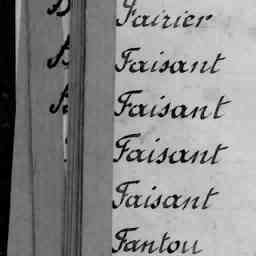 Fairier
Faisant
Faisant
Faisant
Faisant
Fantou